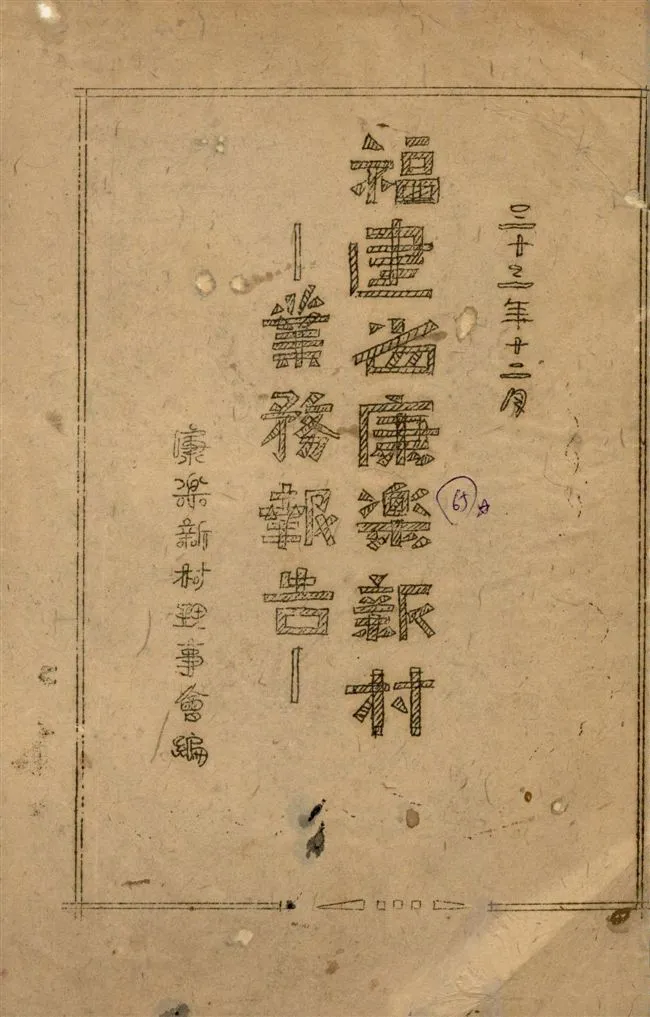 三十三年十二月
福建省康樂新村
—業務報告—
康楽新村理事會編
65